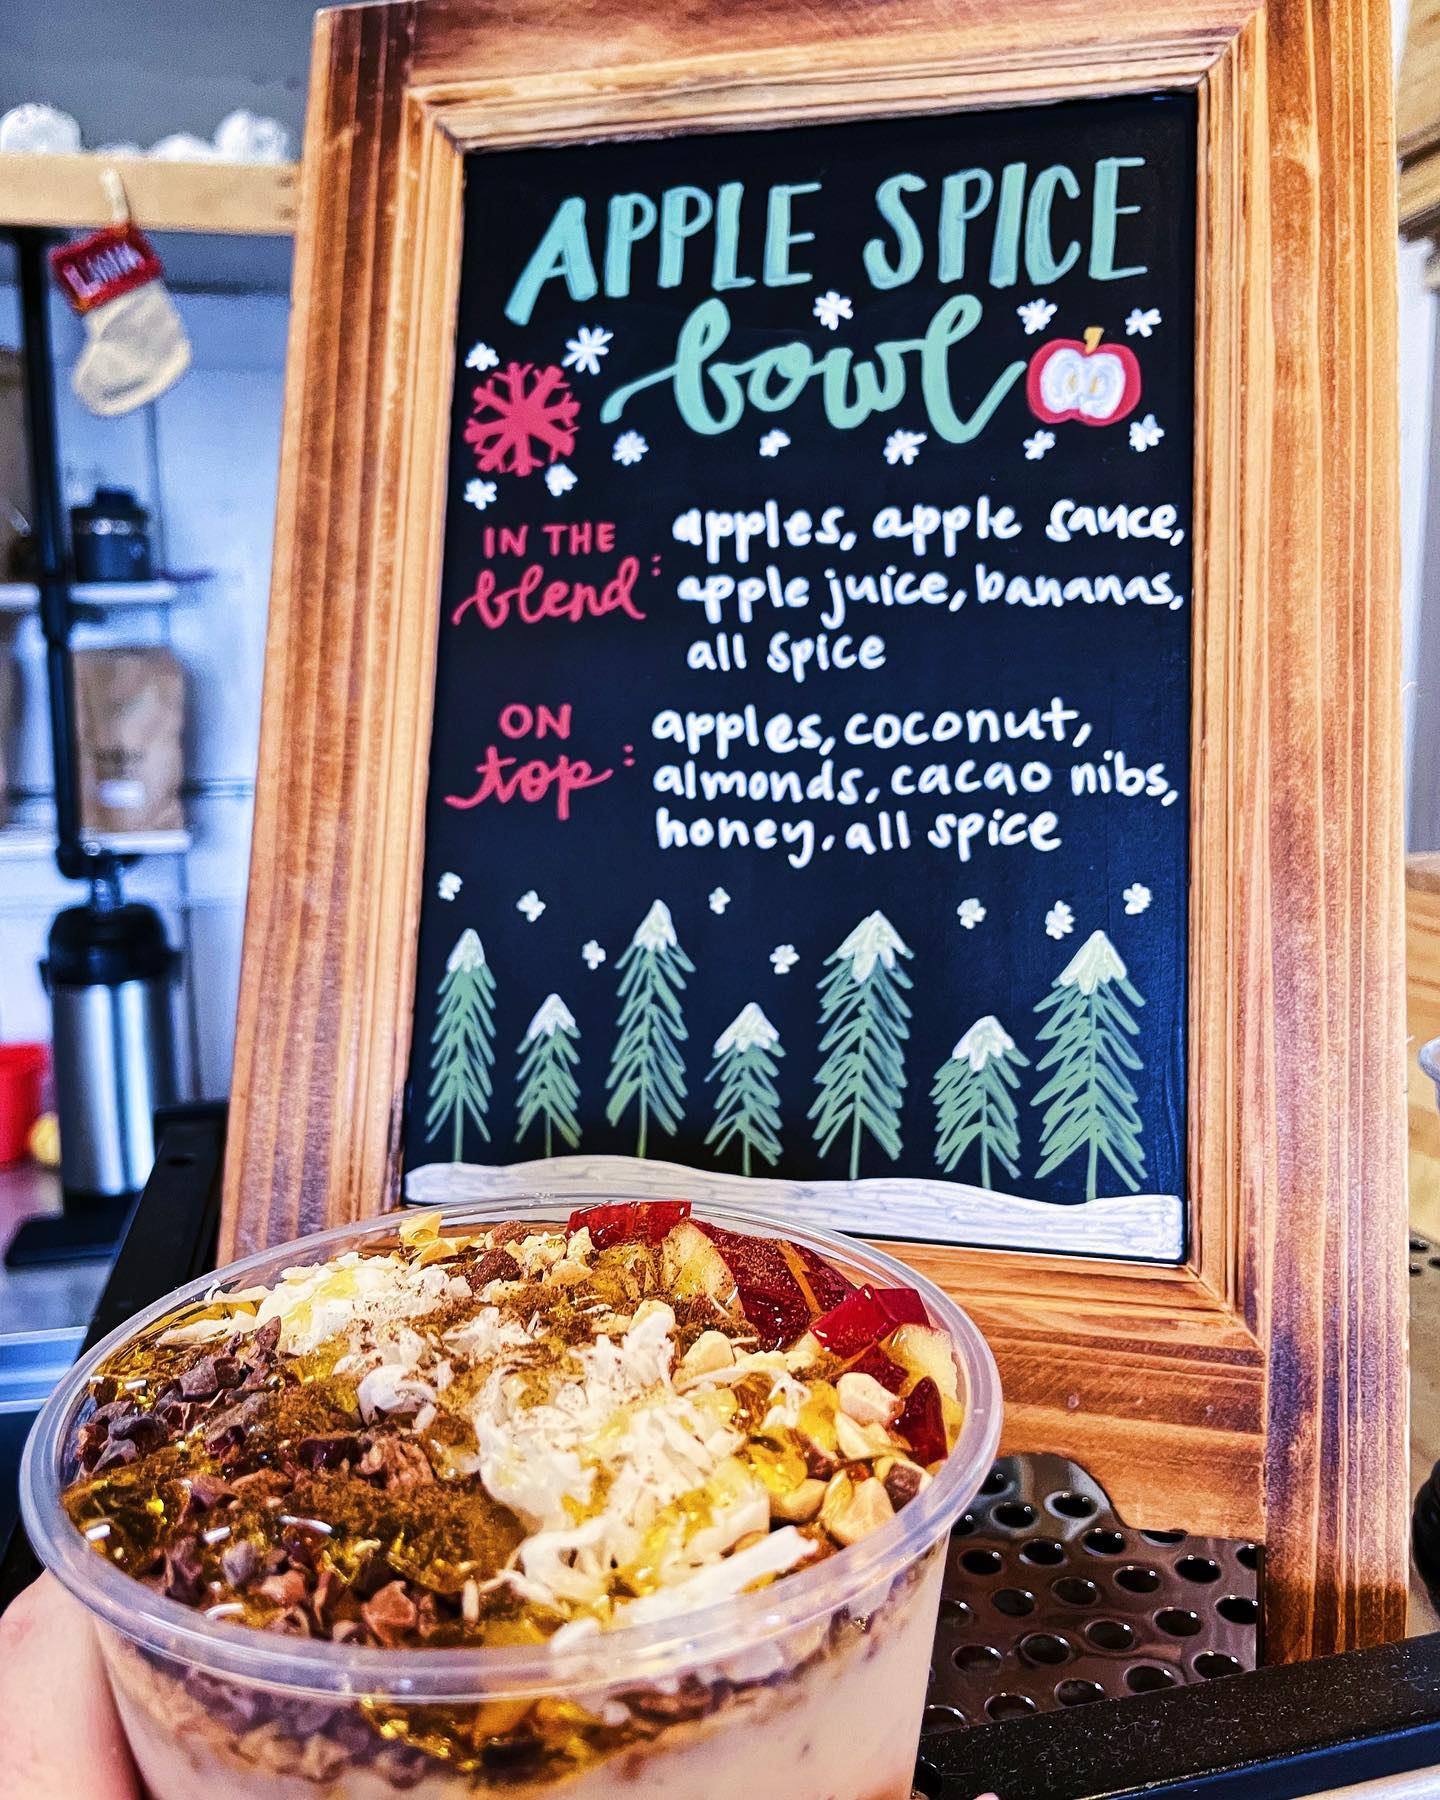 APPLE SPICE
bowl
IN THE
blend:
apples, apple sauce,
apple juice, bananas,
all spice
ON
top:
apples, coconut,
almonds, cacao nibs,
honey, all spice